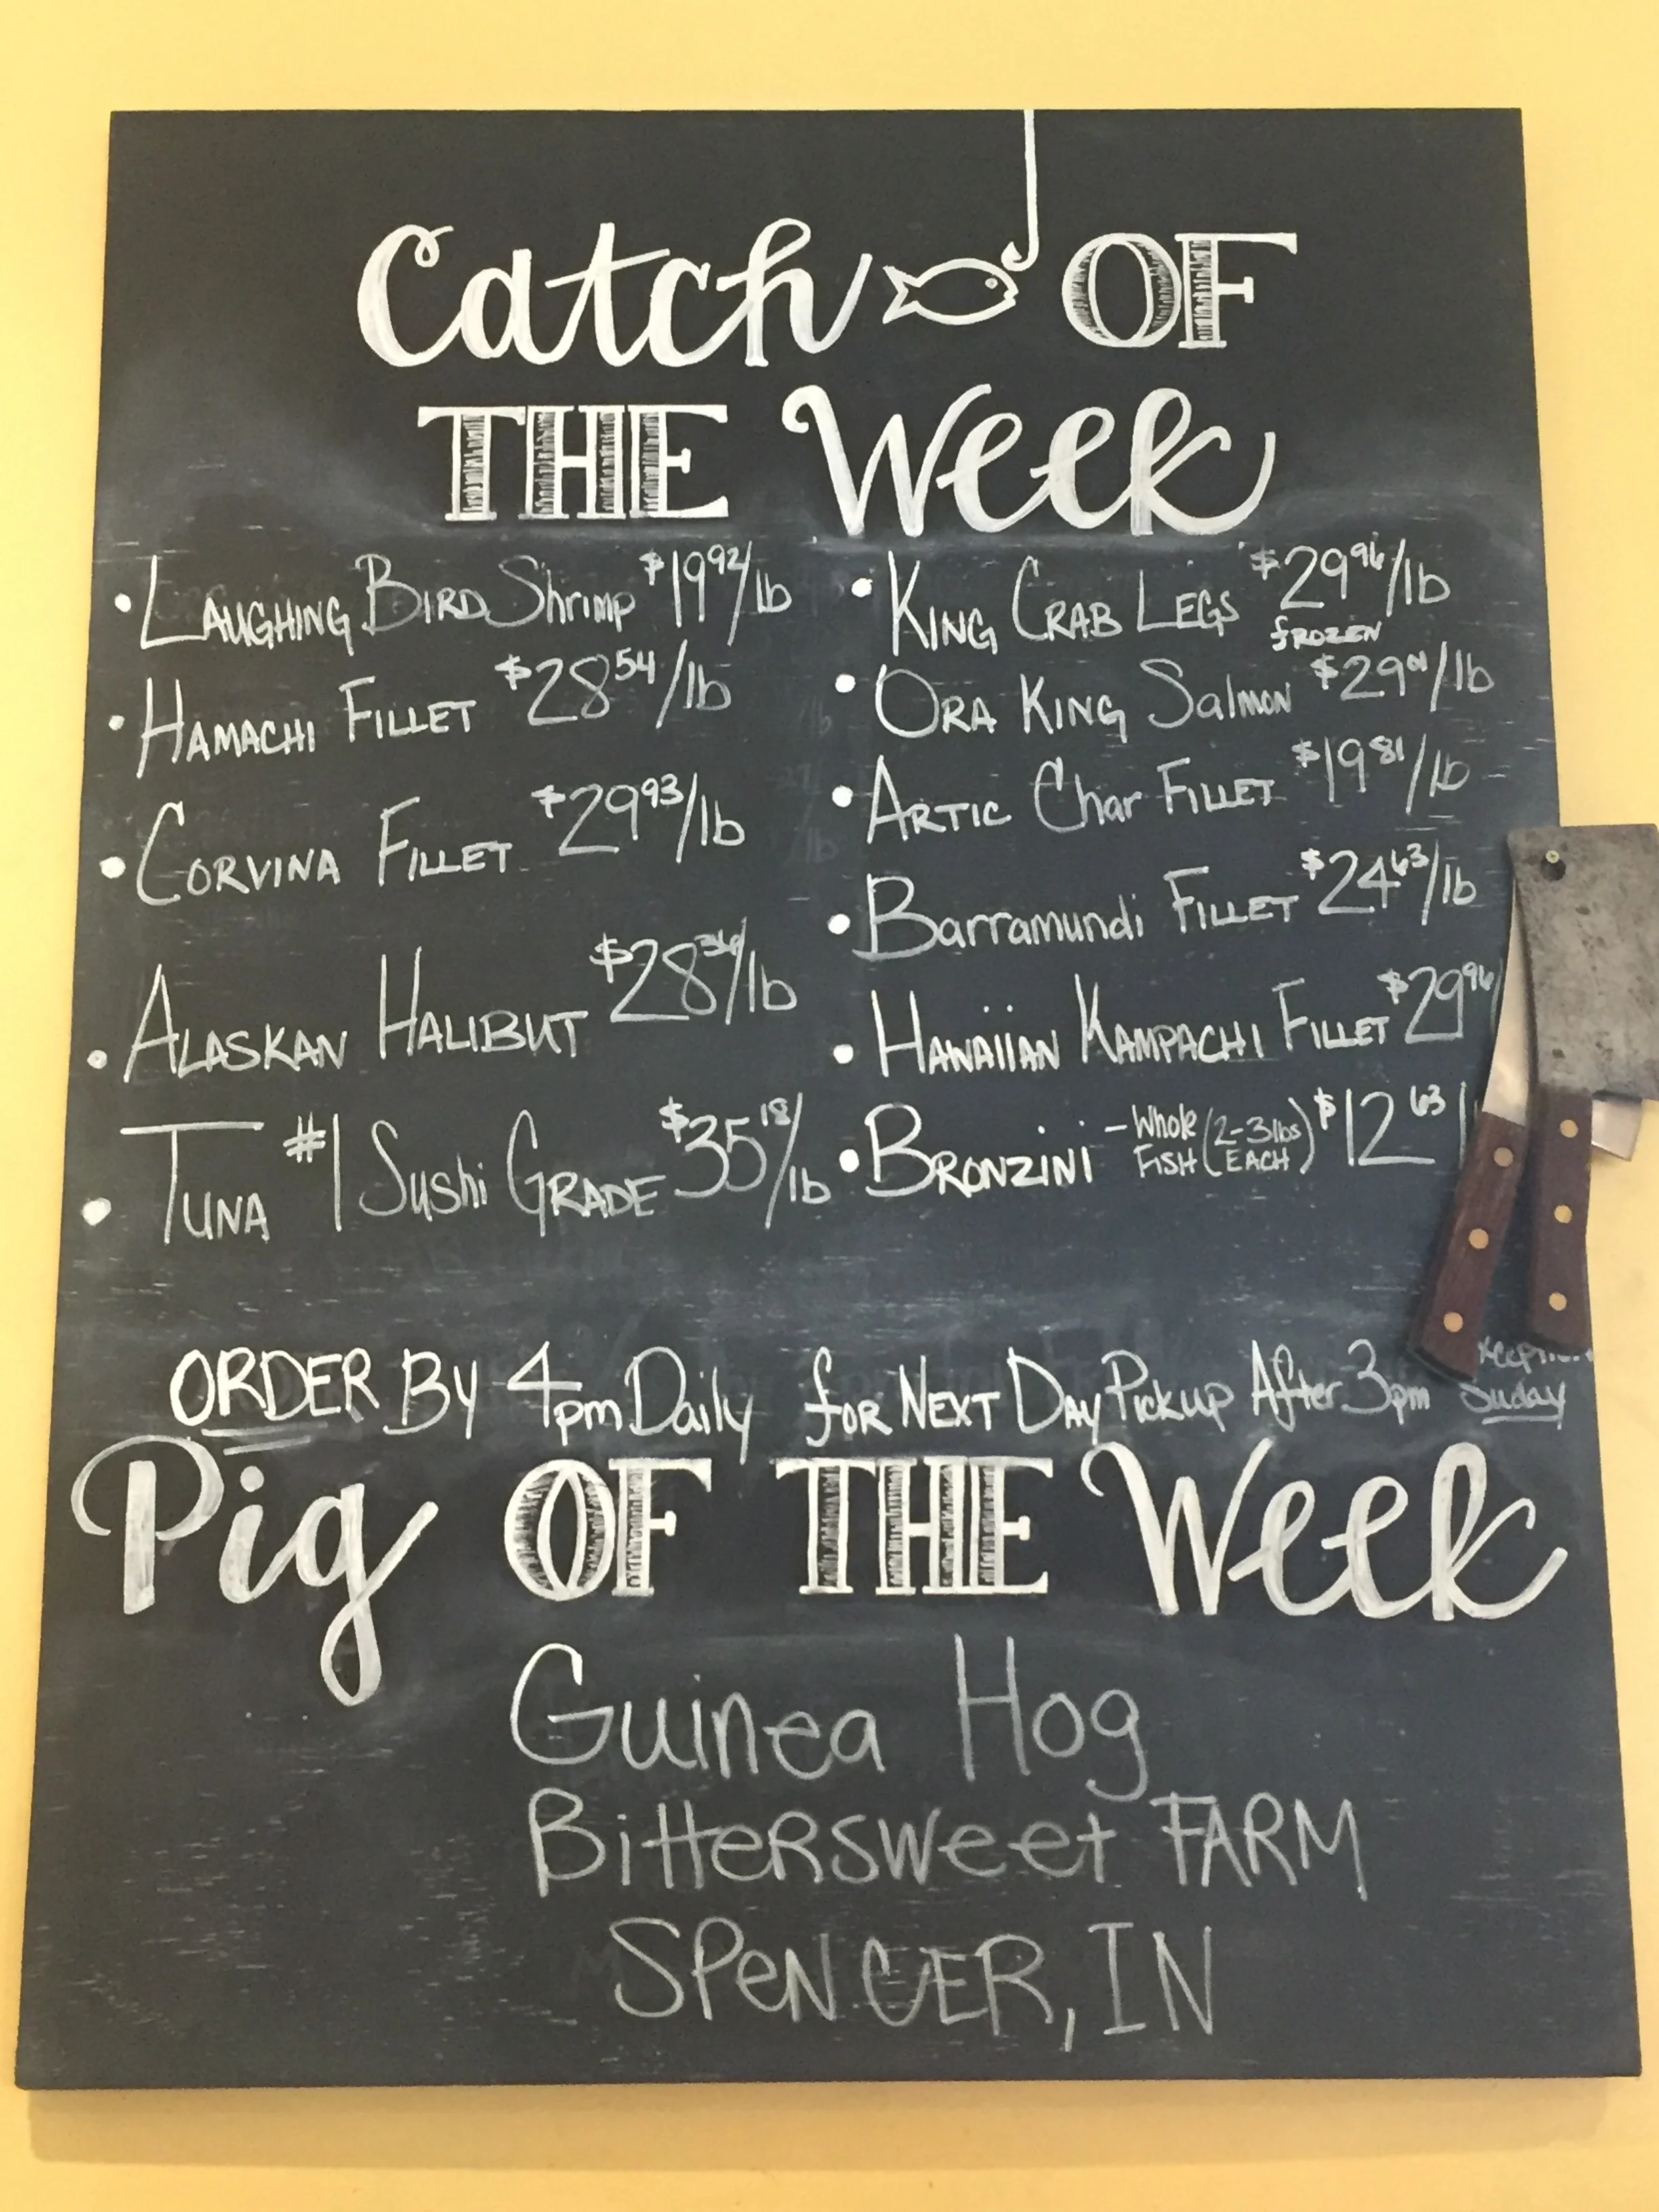 Catch OF
THE Week
• LAUGHING BIRD Shrimp $19.92/lb
• HAMACHI FILLET $28.54/lb
• CORVINA FILLET $29.93/lb
• ALASKAN HALIBUT $28.36/lb
• TUNA #1 Sushi GRADE $35.18/lb
• KING CRAB LEGS $29.96/lb
frozen
• ORA KING Salmon $29.01/lb
• ARTIC Char FILLET $19.81/lb
• Barramundi FILLET $24.63/lb
• HAWAIIAN KAMPACHI FILLET $29.96
• BRONZINI - Whole FISH (2-3 lbs EACH) $12.63
ORDER By 4pm Daily for NEXT DAY Pickup After 3pm Suday
Pig OF THE Week
Guinea Hog
Bittersweet FARM
SPENCER, IN